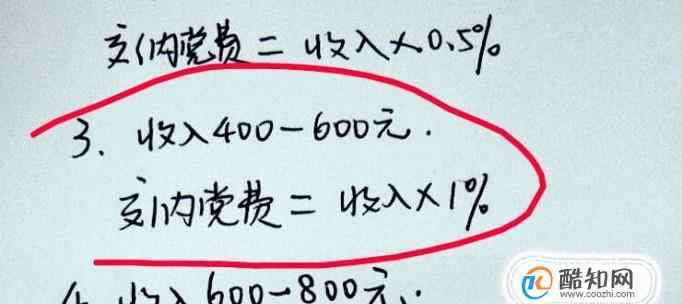 交纳党费=收入×0.5%
3. 收入400-600元.
交纳党费=收入×1%
4. 收入600-800元.
酷知网
www.coozhi.com